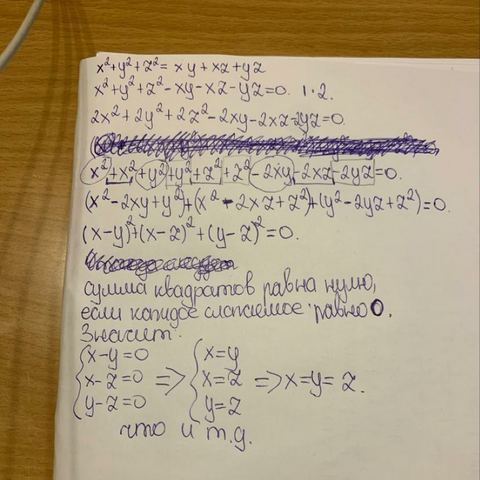 x²+y²+z²= xy+xz+yz
x²+y²+z²-xy-xz-yz=0. |·2.
2x²+2y²+2z²-2xy-2xz-2yz=0.
x²+x²+y²+y²+z²+z²-2xy-2xz-2yz=0.
(x²-2xy+y²)+(x²-2xz+z²)+(y²-2yz+z²)=0.
(x-y)²+(x-z)²+(y-z)²=0.
сумма квадратов равна нулю,
если каждое слагаемое равно 0.
Значит.
{x-y=0 {x=y
x-z=0 => x=z => x=y=z.
y-z=0 y=z
что и т.д.